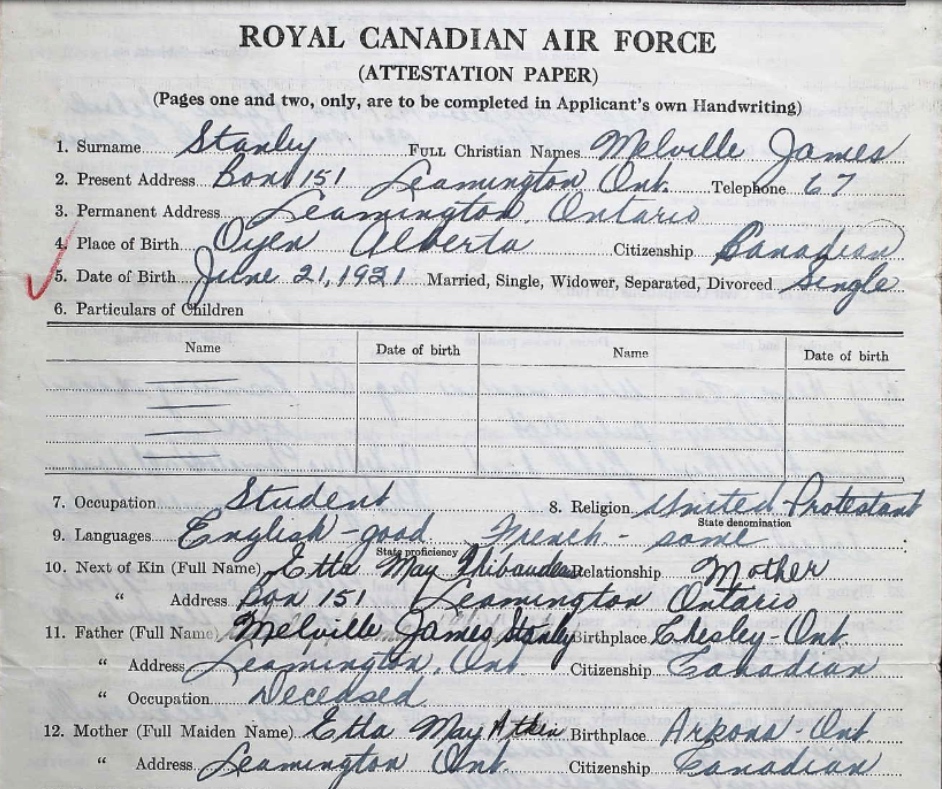 ROYAL CANADIAN AIR FORCE
(ATTESTATION PAPER)
(Pages one and two, only, are to be completed in Applicant's own Handwriting)
1. Surname Stanley FULL Christian Names Melville James
2. Present Address Box 151 Leamington Ont. Telephone 67
3. Permanent Address Leamington, Ontario
4. Place of Birth Oyen Alberta Citizenship Canadian
5. Date of Birth June 21, 1921 Married, Single, Widower, Separated, Divorced Single
6. Particulars of Children
Name Date of birth Name Date of birth
7. Occupation Student 8. Religion United Protestant
State denomination
9. Languages English - good French - some
State proficiency
10. Next of Kin (Full Name) Etta May Relationship Mother
" Address Box 151 Leamington Ontario
11. Father (Full Name) Melville James Stanley Birthplace Chesley - Ont
" Address Leamington, Ont Citizenship Canadian
" Occupation Deceased
12. Mother (Full Maiden Name) Etta May Birthplace Arkona - Ont
" Address Leamington Ont. Citizenship Canadian